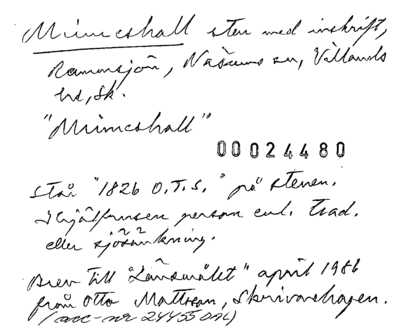 Mimeshall sten med inskrift,
Rammsjön, Näsums sn, Villands
hd, Sk.
"Mimeshall"
00024480
står "1826 O.T.S." på stenen.
Ihjälfrusen person enl. trad.
eller sjösänkning.
Brev till "Länsmålet" april 1986
från Otto Mattsson, Skrivarehagen.
(acc-nr 24455